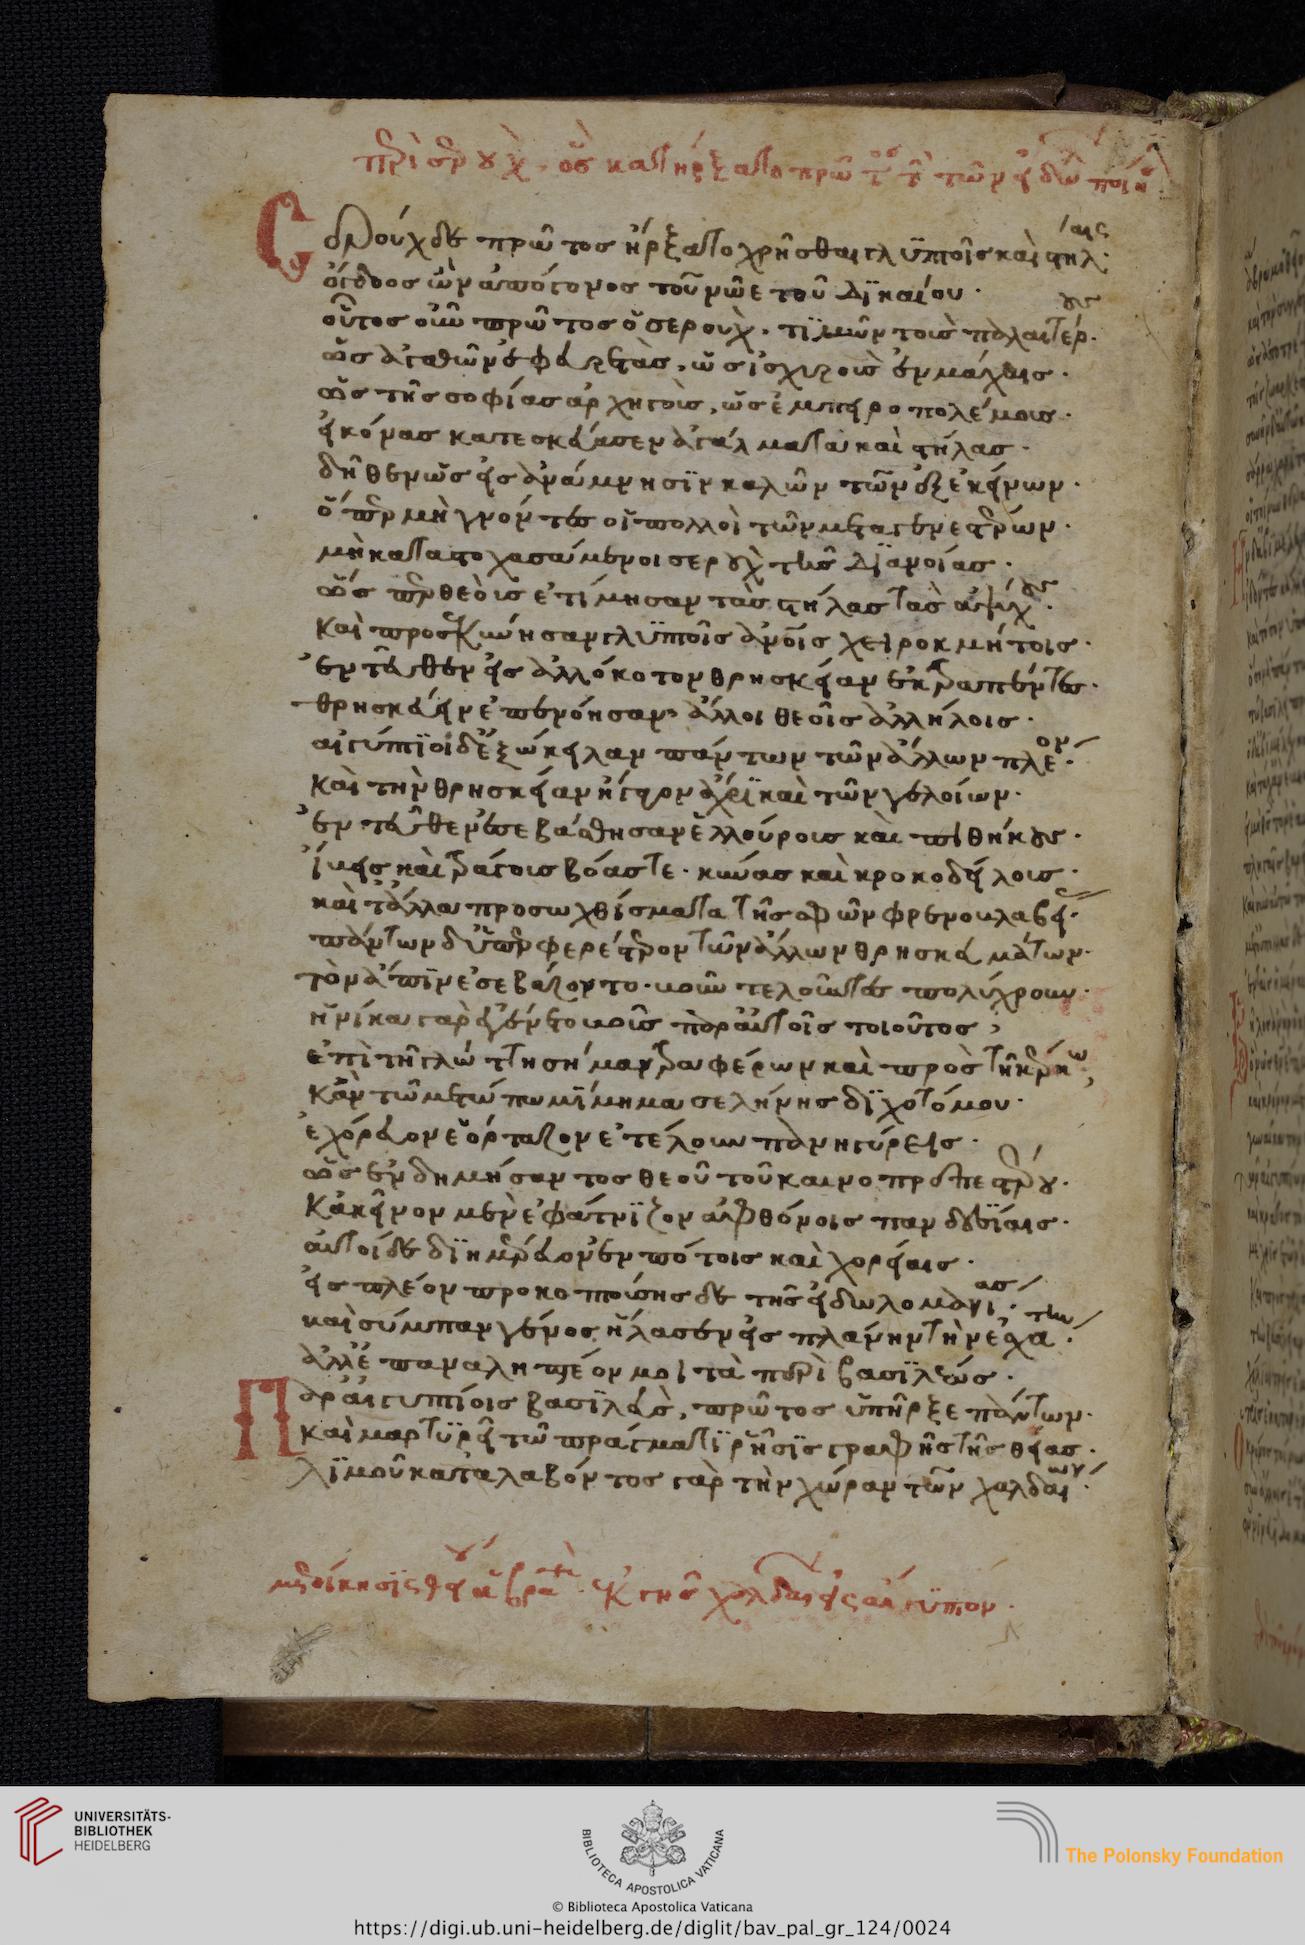 περὶ σεροὺχ. ὃς κατήρξατο πρῶτος τὴν τῶν εἰδώλων ποιΐαν
Σεροὺχ δὲ πρῶτος ἤρξατο χρῆσθαι γλυπτοῖς καὶ στήλαις·
ὄγδοος ὢν ἀπόγονος τοῦ νῶε τοῦ δικαίου·
οὗτος οὖν πρῶτος ὁ σεροὺχ, τιμῶν τοὺς παλαιτέρους·
ὡς ἀγαθῶν ἐφευρετὰς, ὡς ἰσχυροὺς ἐν μάχαις·
ὡς τῆς σοφίας ἀρχηγοὺς, ὡς ἐμπειροπολέμους·
εἰκόνας κατεσκεύασεν ἀγάλματα καὶ στήλας·
δῆθεν ὡς εἰς ἀνάμνησιν καλῶν τῶν ἐξ ἐκείνων·
ὅπερ μὴ γνόντες οἱ πολλοὶ τῶν μεταγενεστέρων·
μὴ καταστοχασάμενοι σεροὺχ τῆς διανοίας·
ὥσπερ θεοὺς ἐτίμησαν τὰς στήλας τὰς ἀψύχους·
καὶ προσεκύνησαν γλυπτοῖς ἀνοῖς χειροκμήτοις·
ἐντεῦθεν εἰς ἀλλόκοτον θρησκείαν ἐκτραπέντες·
θρησκεύειν ἐπενόησαν ἄλλοι θεοῖς ἀλλήλοις·
αἰγύπτιοι δ' ἐξώκειλαν πάντων τῶν ἄλλων πλέον·
καὶ τὴν θρησκείαν ἤγειρον ἄχρι καὶ τῶν γελοίων·
ἐντεῦθεν ἐσεβάσθησαν ἐλλούροις καὶ πιθήκους·
ἴμεις καὶ τράγοις βόας τε· κύνας καὶ κροκοδείλοις·
καὶ τἆλλα προσωχθίσματα τῆς αὐτῶν φρενοβλαβείας·
πάντων δ' ὑπερφερέστερον τῶν ἄλλων θρησκευμάτων·
τὸν ἄπιν ἐσεβάζοντο· μοῦν τελοῦντας πολύχρουν·
ἡνίκα γὰρ ἐγένετο μοῦς παρ' αὐτοῖς τοιοῦτος,
ἐπὶ τῇ γλώττῃ σήμαντρα φέρων καὶ πρὸς τῇ κέρκῳ,
κἂν τῷ μετώπῳ μίμημα σελήνης διχοτόμου·
ἐχόρευον ἐόρταζον ἐτέλουν πανηγύρεις·
ὡς ἐνδημήσαντος θεοῦ τοῦ καινοπρεπεστέρου·
κἀκεῖνον μὲν ἐφάτνιζον ἀφθόνοις πανδεσίαις·
αὐτοὶ δὲ διημέρευον ἐν πότοις καὶ χορείαις·
εἰς πλέον προκοπτούσης δὲ τῆς εἰδωλομανίας·
καὶ σύμπαν γένος ἤλασεν εἰς πλάνην τὴν ἐσχάτην·
ἀλλ' ἐπαναληπτέον μοι τὰ περὶ βασιλέως·
Παρ' αἰγυπτίοις βασιλεὺς, πρῶτος ὑπῆρξε πάντων·
καὶ μαρτυρεῖ τῷ πράγματι ῥῆσις γραφῆς τῆς θείας·
λιμοῦ καταλαβόντος γὰρ τὴν χώραν τῶν χαλδαίων·
μετοίκησις θείου ἀβραὰμ· ἐκ τῆς χαλδαίων εἰς αἴγυπτον·
UNIVERSITÄTS-
BIBLIOTHEK
HEIDELBERG
BIBLIOTECA APOSTOLICA VATICANA
The Polonsky Foundation
© Biblioteca Apostolica Vaticana
https://digi.ub.uni-heidelberg.de/diglit/bav_pal_gr_124/0024